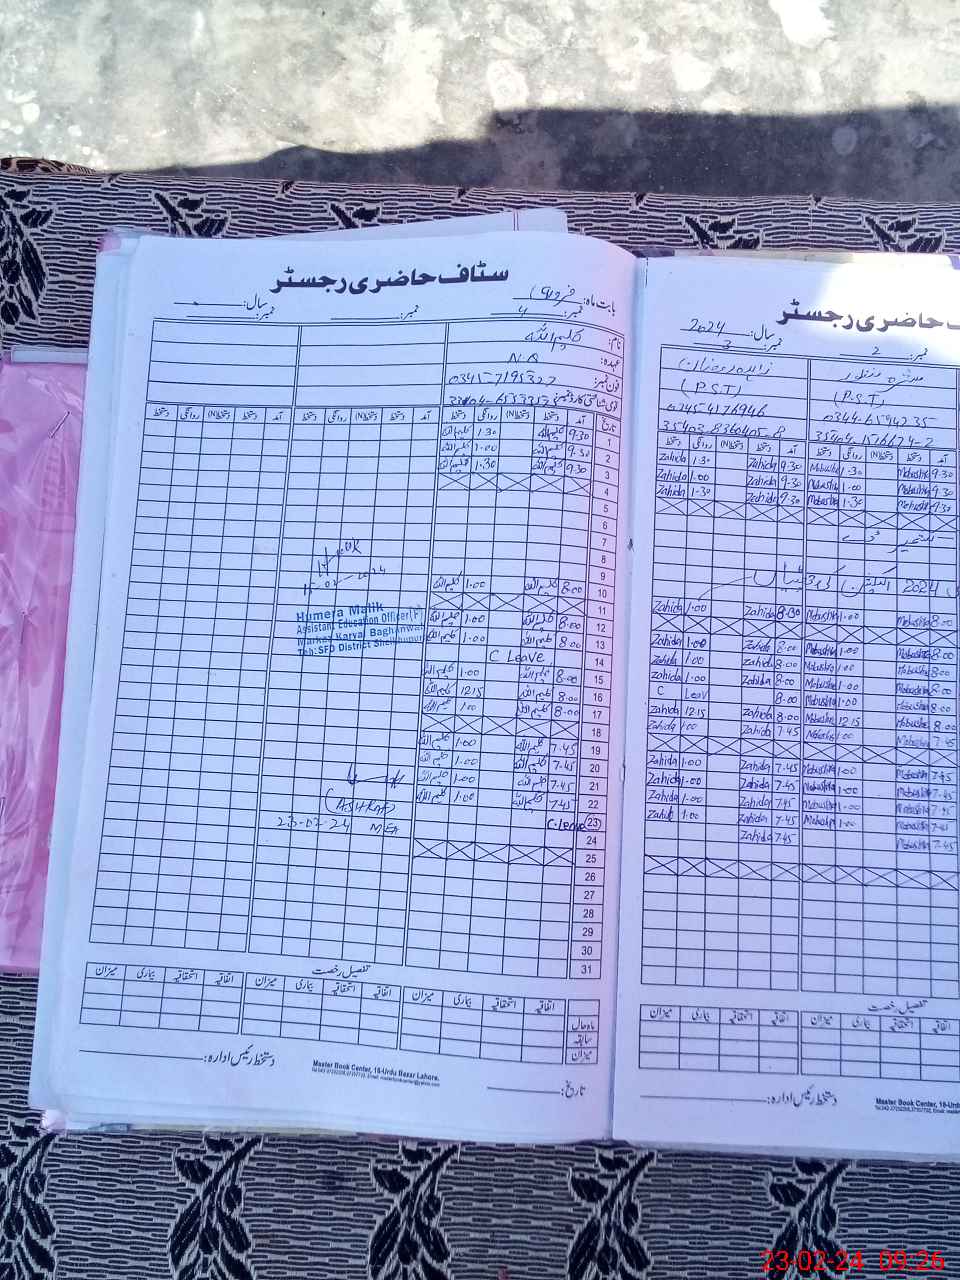 سٹاف حاضری رجسٹر
بابت ماہ: فروری
سال:
نمبر: 4
نمبر:
نمبر:
نام: کلیم اللہ
عہدہ: N.Q
فون نمبر: 0345-7195327
تاریخ آمد دستخط (N)دستخط روانگی دستخط آمد دستخط (N)دستخط روانگی دستخط آمد دستخط (N)دستخط روانگی دستخط
1 9.30 کلیم اللہ 1.30 کلیم اللہ
2 9.30 کلیم اللہ 1.00 کلیم اللہ
3 9.30 کلیم اللہ 1.30 کلیم اللہ
4
5
6
7
8
9
10 8.00 کلیم اللہ 1.00 کلیم اللہ
11
12 8.00 کلیم اللہ 1.00 کلیم اللہ
13 8.00 کلیم اللہ 1.00 کلیم اللہ
14 C Leave
15 8.00 کلیم اللہ 1.00 کلیم اللہ
16 8.00 کلیم اللہ 12.15 کلیم اللہ
17 8.00 کلیم اللہ 1.00 کلیم اللہ
18
19 7.45 کلیم اللہ 1.00 کلیم اللہ
20 7.45 کلیم اللہ 1.00 کلیم اللہ
21 7.45 کلیم اللہ 1.00 کلیم اللہ
22 7.45 کلیم اللہ 1.00 کلیم اللہ
23 C.Leave
24
25
26
27
28
29
30
31
15-02-2024
Humera Malik
Assistant Education Officer(F)
Markaz Karyal Baghanwala
Teh:SFD District Sheikhupura
(ASHKAF)
23-02-24 MEA
تفصیل رخصت
اتفاقیہ استحقاقیہ بیماری میزان اتفاقیہ استحقاقیہ بیماری میزان اتفاقیہ استحقاقیہ بیماری میزان
ماہ حال
سابقہ
میزان
دستخط رئیس ادارہ:
تاریخ:
Master Book Center, 18-Urdu Bazar Lahore.
حاضری رجسٹر
سال: 2024
نمبر: 2
نمبر: 3
(P.S.T)
(P.S.T)
0344-6594235
0345 4176946
35404-1516674-2
35403-8360405-8
آمد دستخط (N)دستخط روانگی دستخط آمد دستخط (N)دستخط روانگی دستخط
9.30 Mobashra 1.30 Mobashra 9.30 Zahida 1.30 Zahida
9.30 Mobashra 1.00 Mobashra 9.30 Zahida 1.00 Zahida
9.30 Mobashra 1.30 Mobashra 9.30 Zahida 1.30 Zahida
2024 الیکشن ڈیوٹیاں
8.00 Mobashra 1.00 Mobashra 8.00 Zahida 1.00 Zahida
8.00 Mobashra 1.00 Mobashra 8.00 Zahida 1.00 Zahida
8.00 Mobashra 1.00 Mobashra 8.00 Zahida 1.00 Zahida
8.00 Mobashra 1.00 Mobashra 8.00 Zahida 1.00 Zahida
8.00 Mobashra 1.00 Mobashra 8.00 C Leav
8.00 Mobashra 12.15 Mobashra 8.00 Zahida 12.15 Zahida
7.45 Mobashra 1.00 Mobashra 7.45 Zahida 1.00 Zahida
7.45 Mobashra 1.00 Mobashra 7.45 Zahida 1.00 Zahida
7.45 Mobashra 1.00 Mobashra 7.45 Zahida 1.00 Zahida
7.45 Mobashra 1.00 Mobashra 7.45 Zahida 1.00 Zahida
7.45 Mobashra 1.00 Mobashra 7.45 Zahida 1.00 Zahida
7.45 Mobashra 7.45 Zahida
تفصیل رخصت
اتفاقیہ استحقاقیہ بیماری میزان اتفاقیہ استحقاقیہ بیماری میزان
دستخط رئیس ادارہ:
Master Book Center, 18-Urdu
23-02-24 09:26